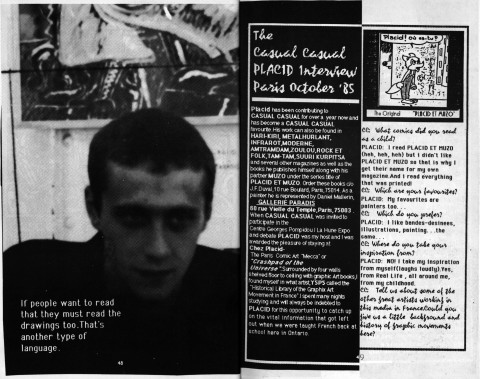 If people want to read
that they must read the
drawings too.That's
another type of
language.
The
Casual Casual
PLACID Interview
Paris October '85
Placid has been contributing to
CASUAL CASUAL for over a year now and
has become a CASUAL CASUAL
favourite. His work can also be found in
HARI-KIRI, METALHURLANT,
INFRAROT,MODERNE,
AMTRAMDAM,ZOULOU,ROCK ET
FOLK,TAM-TAM,SUURI KURPITSA
and several other magazines as well as the
books he publishes himself along with his
partner MUZO under the series title of
PLACID ET MUZO. Order these books c/o
J.F.Duval, 10 rue Boulard, Paris,75014. As a
painter he is represented by Daniel Mallerin,
GALLERIE PARADIS
80 rue Vielle du Temple,Paris,75003.
When CASUAL CASUAL was invited to
participate in the
Centre Georges Pompidou/La Hune Expo
and debate PLACID was my host and I was
awarded the pleasure of staying at
Chez Placid-
The Paris Comic Art "Mecca" or
"Crashpad of the
Universe" Surrounded by four walls
shelved floor to ceiling with graphic Art books, I
found myself in what artist,YSPS called the
"Historical Library of the Graphic Art
Movement in France" I spent many nights
studying and will always be indebted to
PLACID for this opportunity to catch up
on the vital information that got left
out when we were taught French back at
school here in Ontario.
Placid! où es-tu?
The Original "PLACID ET MUZO"
CC: What comics did you read
as a child?
PLACID: I reed PLACID ET MUZO
(heh, heh, heh) but i didn't like
PLACID ET MUZO so that is why I
get their name for my own
magazine.And I read everything
that was printed!
CC: Which are your favourites?
PLACID: My favourites are
painters too...
CC: Which do you prefer?
PLACID: I like bandes-desinees,
illustrations, painting...the
same...
CC: Where do you take your
inspiration from?
PLACID: NO! I take my inspiration
from myself(laughs loudly).Yes,
from Real Life, all around me,
from my childhood.
CC: Tell us about some of the
other great artists working in
this media in France.Could you
give us a little background and
history of graphic movements
here?